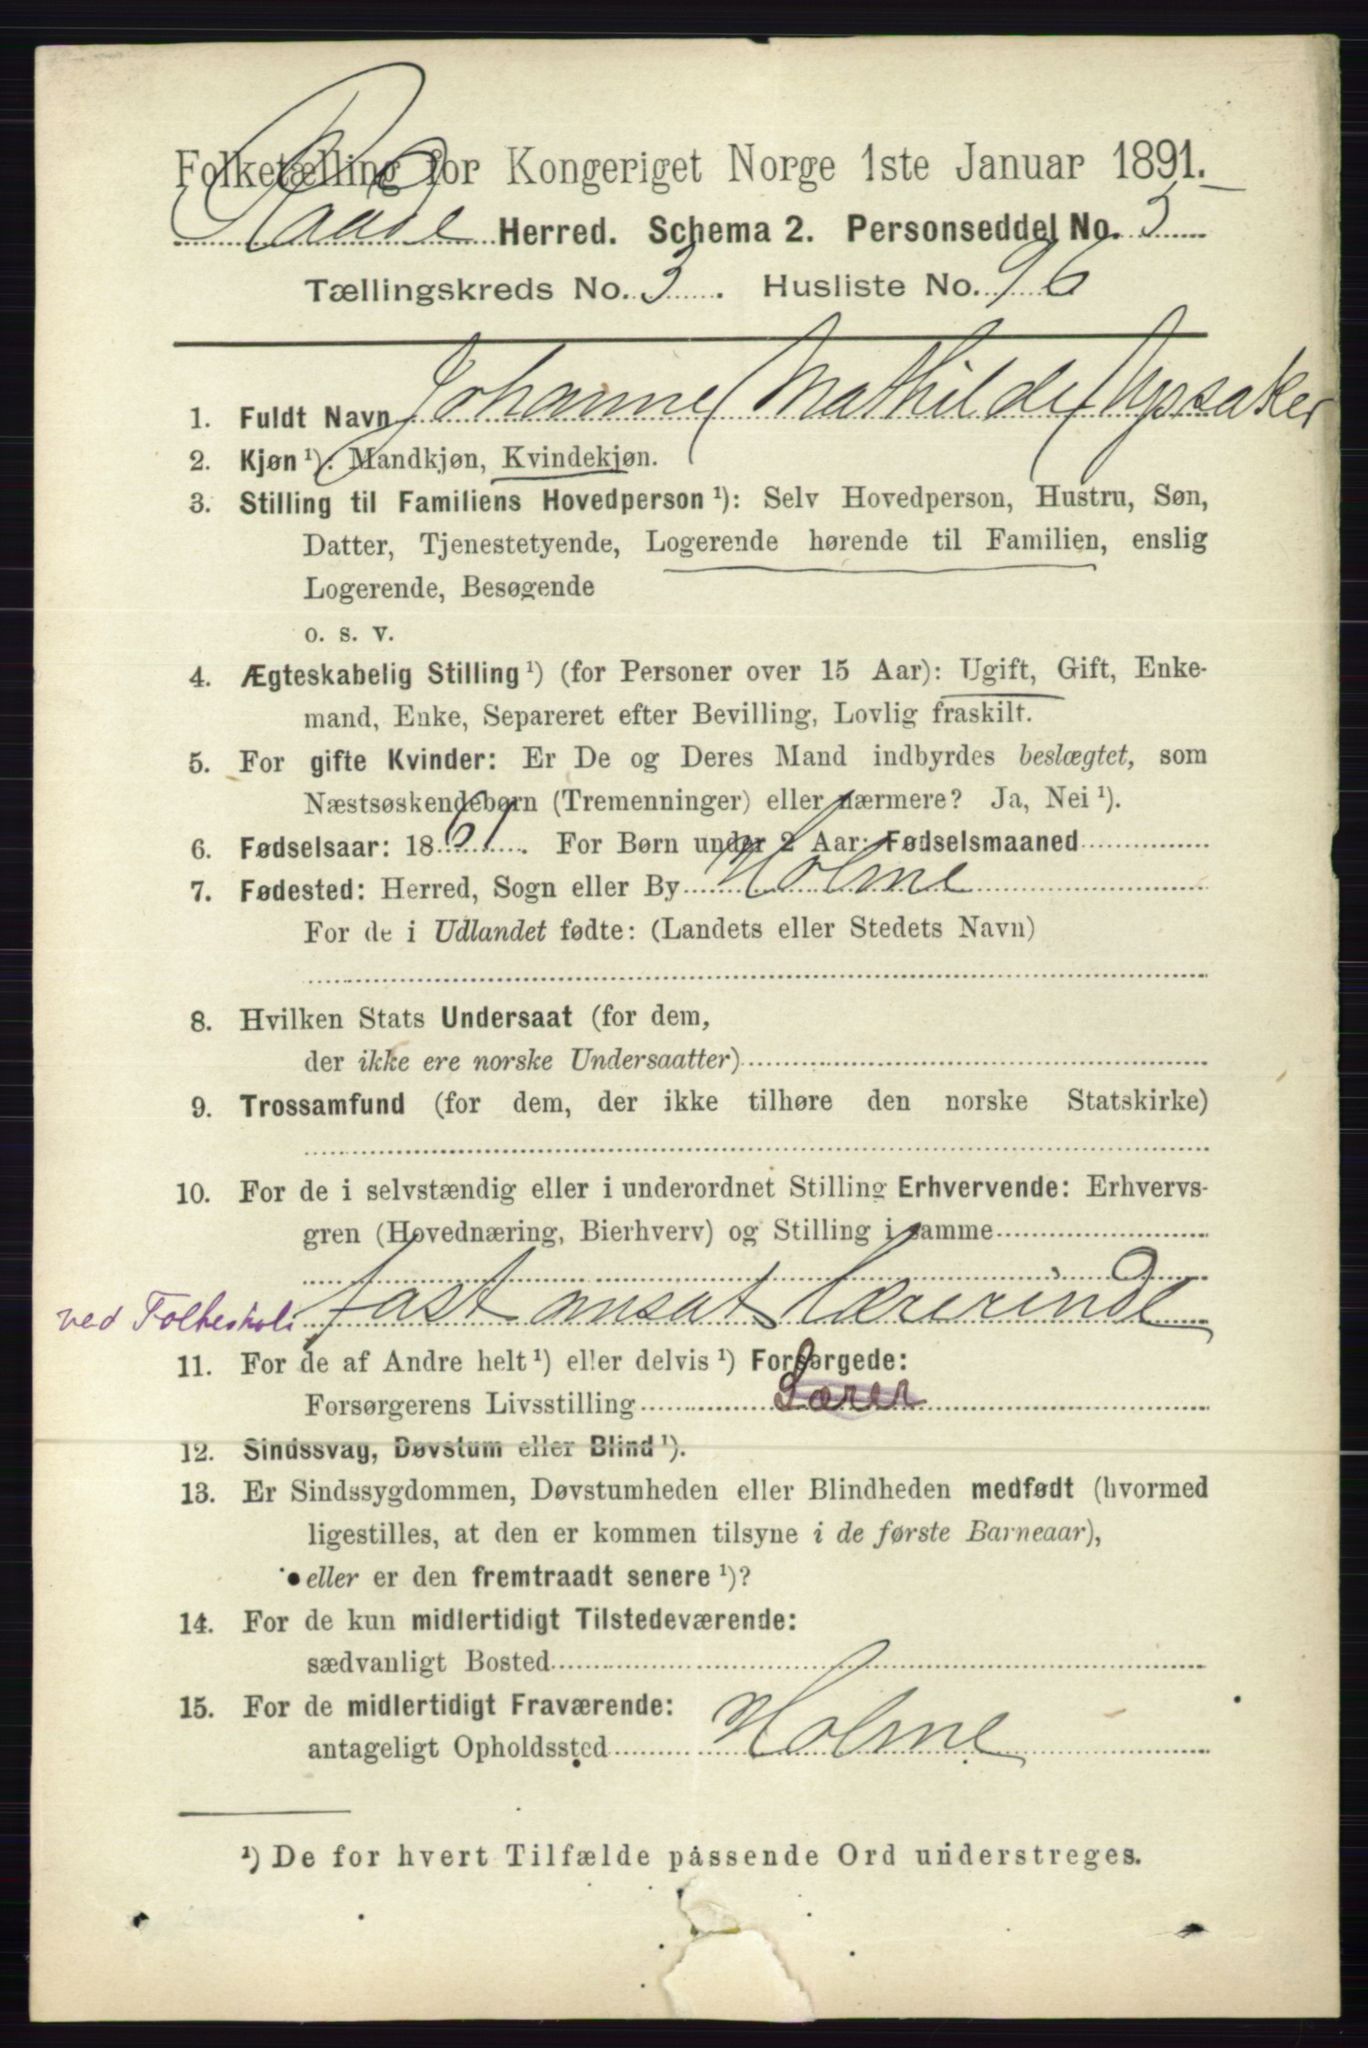 Folketælling for Kongeriget Norge 1ste Januar 1891.
Raade Herred. Schema 2. Personseddel No. 3
Tællingskreds No. 3. Husliste No. 96
1. Fuldt Navn Johanne Mathilde Opsaker
2. Kjøn ¹): Mandkjøn, Kvindekjøn.
3. Stilling til Familiens Hovedperson ¹): Selv Hovedperson, Hustru, Søn,
Datter, Tjenestetyende, Logerende hørende til Familien, enslig
Logerende, Besøgende
o. s. v.
4. Ægteskabelig Stilling ¹) (for Personer over 15 Aar): Ugift, Gift, Enke-
mand, Enke, Separeret efter Bevilling, Lovlig fraskilt.
5. For gifte Kvinder: Er De og Deres Mand indbyrdes beslægtet, som
Næstsøskendebørn (Tremenninger) eller nærmere? Ja, Nei ¹).
6. Fødselsaar: 1861. For Børn under 2 Aar: Fødselsmaaned
7. Fødested: Herred, Sogn eller By Holme
For de i Udlandet fødte: (Landets eller Stedets Navn)
8. Hvilken Stats Undersaat (for dem,
der ikke ere norske Undersaatter)
9. Trossamfund (for dem, der ikke tilhøre den norske Statskirke)
10. For de i selvstændig eller i underordnet Stilling Erhvervende: Erhvervs-
gren (Hovednæring, Bierhverv) og Stilling i samme
ved Folkeskole fast ansat Lærerinde
11. For de af Andre helt ¹) eller delvis ¹) Forsørgede:
Forsørgerens Livsstilling Lærer
12. Sindssvag, Døvstum eller Blind ¹).
13. Er Sindssygdommen, Døvstumheden eller Blindheden medfødt (hvormed
ligestilles, at den er kommen tilsyne i de første Barneaar),
eller er den fremtraadt senere ¹)?
14. For de kun midlertidigt Tilstedeværende:
sædvanligt Bosted
15. For de midlertidigt Fraværende:
antageligt Opholdssted Holme
¹) De for hvert Tilfælde passende Ord understreges.